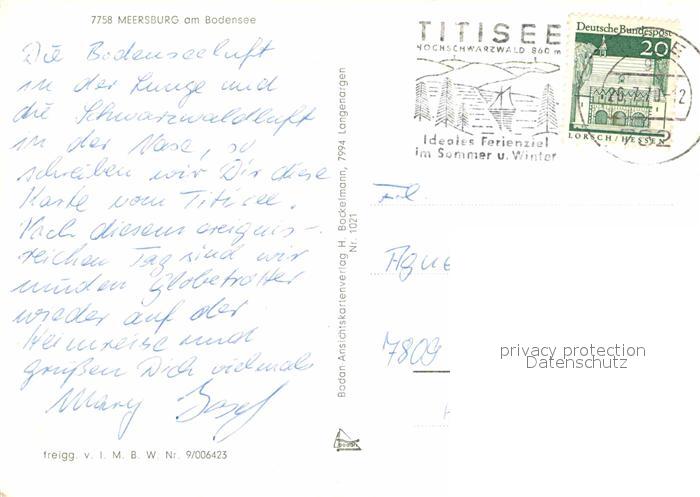 7758 MEERSBURG am Bodensee
Die Bodenseeluft
in der Lunge und
die Schwarzwaldluft
in der Nase, so
schreiben wir Dir diese
Karte vom Titisee.
Nach diesem ereignis-
reichen Tag sind wir
müden Globetrotter
wieder auf der
Heimreise und
grüßen Dich vielmals
Mary Josef
freigg. v. I. M. B. W. Nr. 9/006423
Bodan-Ansichtskartenverlag H. Bockelmann, 7994 Langenargen
Nr. 1021
bodan
TITISEE
HOCHSCHWARZWALD 860 m
Ideales Ferienziel
im Sommer u. Winter
Deutsche Bundespost
20
LORSCH/HESSEN
Frl.
Agne
7809
privacy protection
Datenschutz